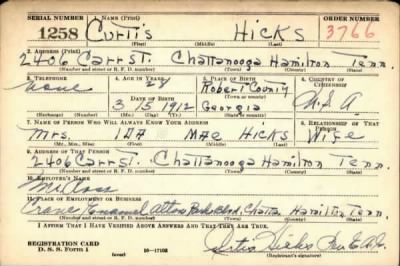 SERIAL NUMBER 1. NAME (Print) ORDER NUMBER
1258 Curtis HICKS 3766
(First) (Middle) (Last)
2. ADDRESS (Print)
2406 Carr St. Chattanooga Hamilton Tenn.
(Number and street or R. F. D. number) (Town) (County) (State)
3. TELEPHONE 4. AGE IN YEARS 5. PLACE OF BIRTH 6. COUNTRY OF CITIZENSHIP
None 28 Robert County
DATE OF BIRTH
3 15 1912 Georgia U.S.A
(Exchange) (Number) (Mo.) (Day) (Yr.) (State or country)
7. NAME OF PERSON WHO WILL ALWAYS KNOW YOUR ADDRESS 8. RELATIONSHIP OF THAT PERSON
Mrs. IDA MAE HICKS Wife
(Mr., Mrs., Miss) (First) (Middle) (Last)
9. ADDRESS OF THAT PERSON
2406 Carr St. Chattanooga Hamilton Tenn.
(Number and street or R. F. D. number) (Town) (County) (State)
10. EMPLOYER'S NAME
11. PLACE OF EMPLOYMENT OR BUSINESS
Crane Enamel Chatta Hamilton Tenn.
(Number and street or R. F. D. number) (Town) (County) (State)
I AFFIRM THAT I HAVE VERIFIED ABOVE ANSWERS AND THAT THEY ARE TRUE.
REGISTRATION CARD
D. S. S. Form 1 (over) 16—17105 Curtis Hicks
(Registrant's signature)